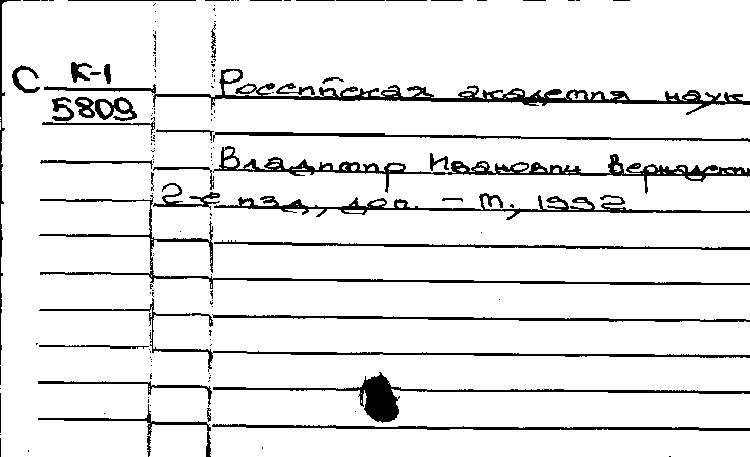 С К-1
5809
Российская академия наук
Владимир Иванович Вернадский
2-е изд., доп. - М., 1992